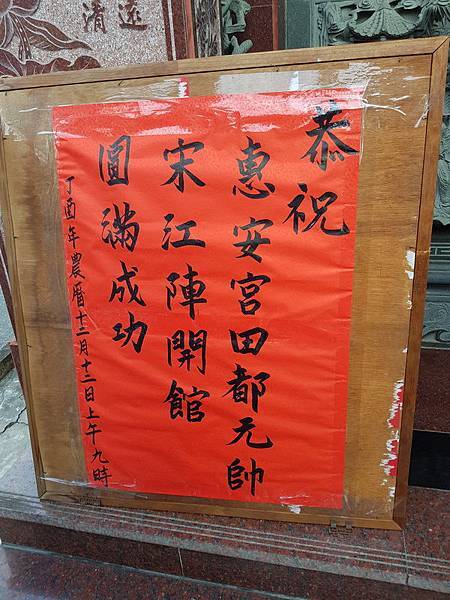 恭祝
惠安宮田都元帥
宋江陣開館
圓滿成功
丁酉年農曆十二月十二日上午九時
遠
清